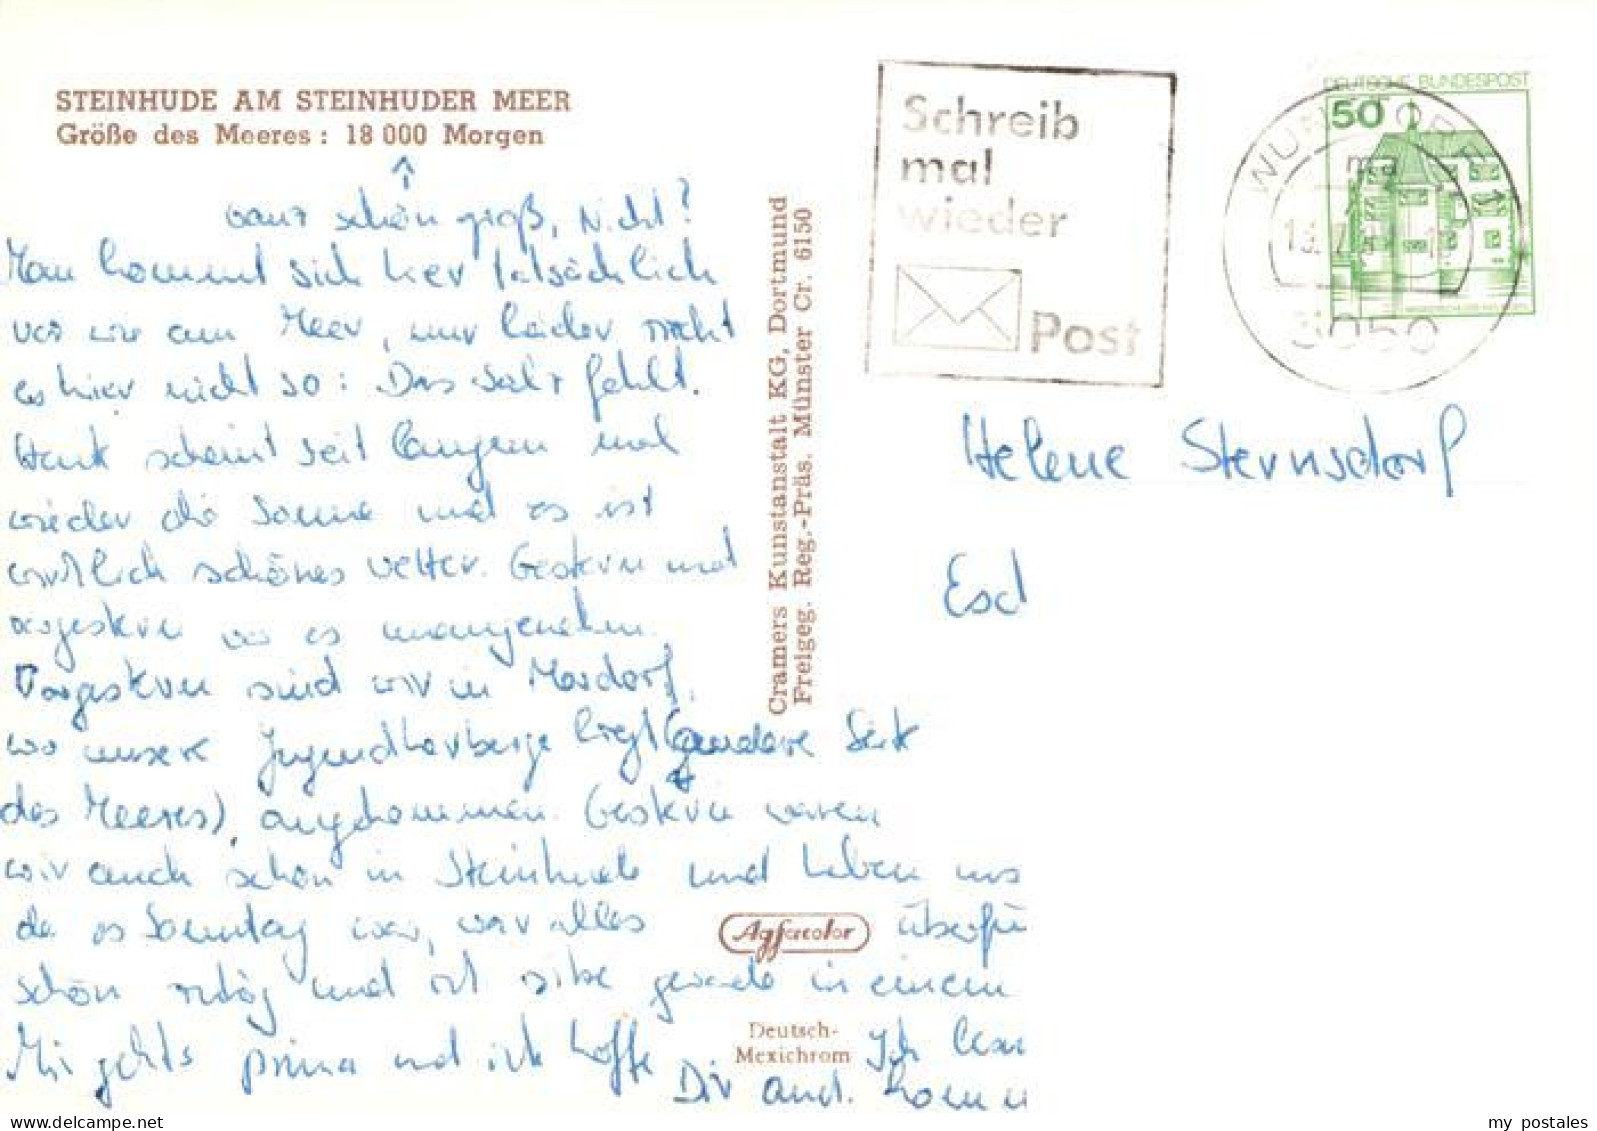 STEINHUDE AM STEINHUDER MEER
Größe des Meeres: 18 000 Morgen
ganz schön groß, Nicht?
Man kommt sich hier tatsächlich
vor wie am Meer, nur leider nicht
es hier nicht so: Das Salz fehlt.
Heute scheint seit langem mal
wieder die Sonne und es ist
wirklich schönes Wetter. Gestern und
vorgestern war es unangenehm.
Vorgestern sind wir in Mardorf,
wo unsere Jugendherberge liegt (andere Seite
des Meeres), angekommen. Gestern waren
wir auch schon in Steinhude und haben uns
da es Sonntag war, war alles überfü
schön und ich sitze gerade in einem
Mir gehts prima und ich hoffe
Dir auch.
Ich
Cramers Kunstanstalt KG, Dortmund
Freigeg. Reg.-Präs. Münster Cr. 6150
Agfacolor
Deutsch-
Mexichrom
Schreib
mal
wieder
Post
DEUTSCHE BUNDESPOST
50
WUNSTORF 1
ma
3050
Helene Sternsdorf
Esch
my postales